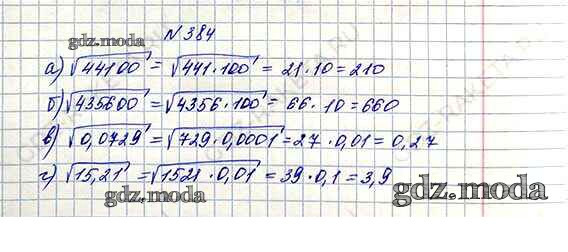 № 384
gdz.moda
а) √44100 = √441·100 = 21·10 = 210
б) √435600 = √4356·100 = 66·10 = 660
в) √0,0729 = √729·0,0001 = 27·0,01 = 0,27
г) √15,21 = √1521·0,01 = 39·0,1 = 3,9
gdz.moda
gdz.moda